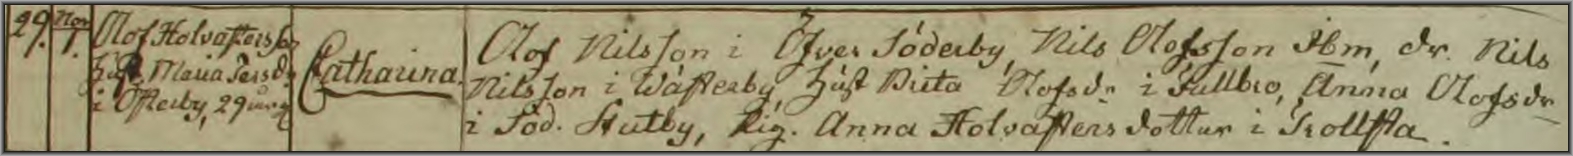 29. Nov 1. Olof Holvastersson
hust. Maria Persdr
i Österby, 29 år g
Catharina.
Olof Nilsson i Öfver Söderby, Nils Olofsson Ibm, dr. Nils
Nilsson i Wästerby, hust Brita Olofsdr i Fullbro, Anna Olofsdr
i Söd. Stutby, Pig. Anna Holvasters dotter i Trollsta.